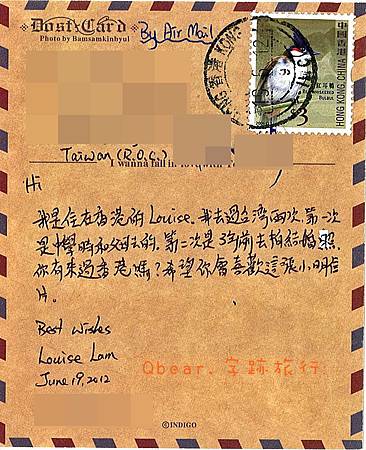 Post Card
Photo by Bamsamkinhyul
By Air Mail
中國香港
HONG KONG, CHINA
紅耳鵯
RED-WHISKERED
BULBUL
3
HONG KONG 香港
Taiwan (R.O.C.)
I wanna fall in
Hi
我是住在香港的Louise. 我去過台灣两次. 第一次
是中學時和父母去的, 第二次是3年前去拍結婚照.
你有來過香港嗎? 希望你會喜歡這張小明信
片。
Best Wishes
Louise Lam
June 19, 2012
Qbear. 字跡旅行
©INDIGO